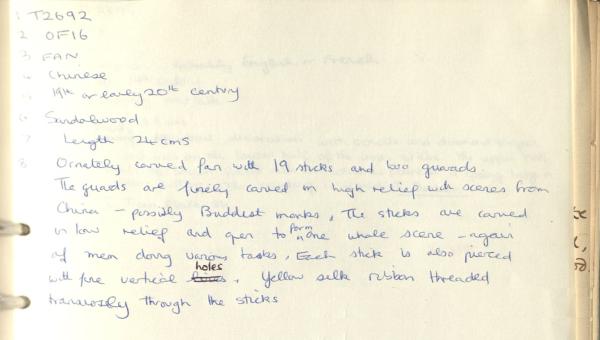 1 T2692
2 OF16
3 FAN
4 Chinese
5 19th or early 20th century
6 Sandalwood
7 Length 24 cms
8 Ornately carved fan with 19 sticks and two guards.
The guards are finely carved in high relief with scenes from
China - possibly Buddest monks, The sticks are carved
in low relief and open to form one whole scene - again
of men doing various tasks, Each stick is also pierced
with fine vertical holes, Yellow silk ribbon threaded
through the sticks